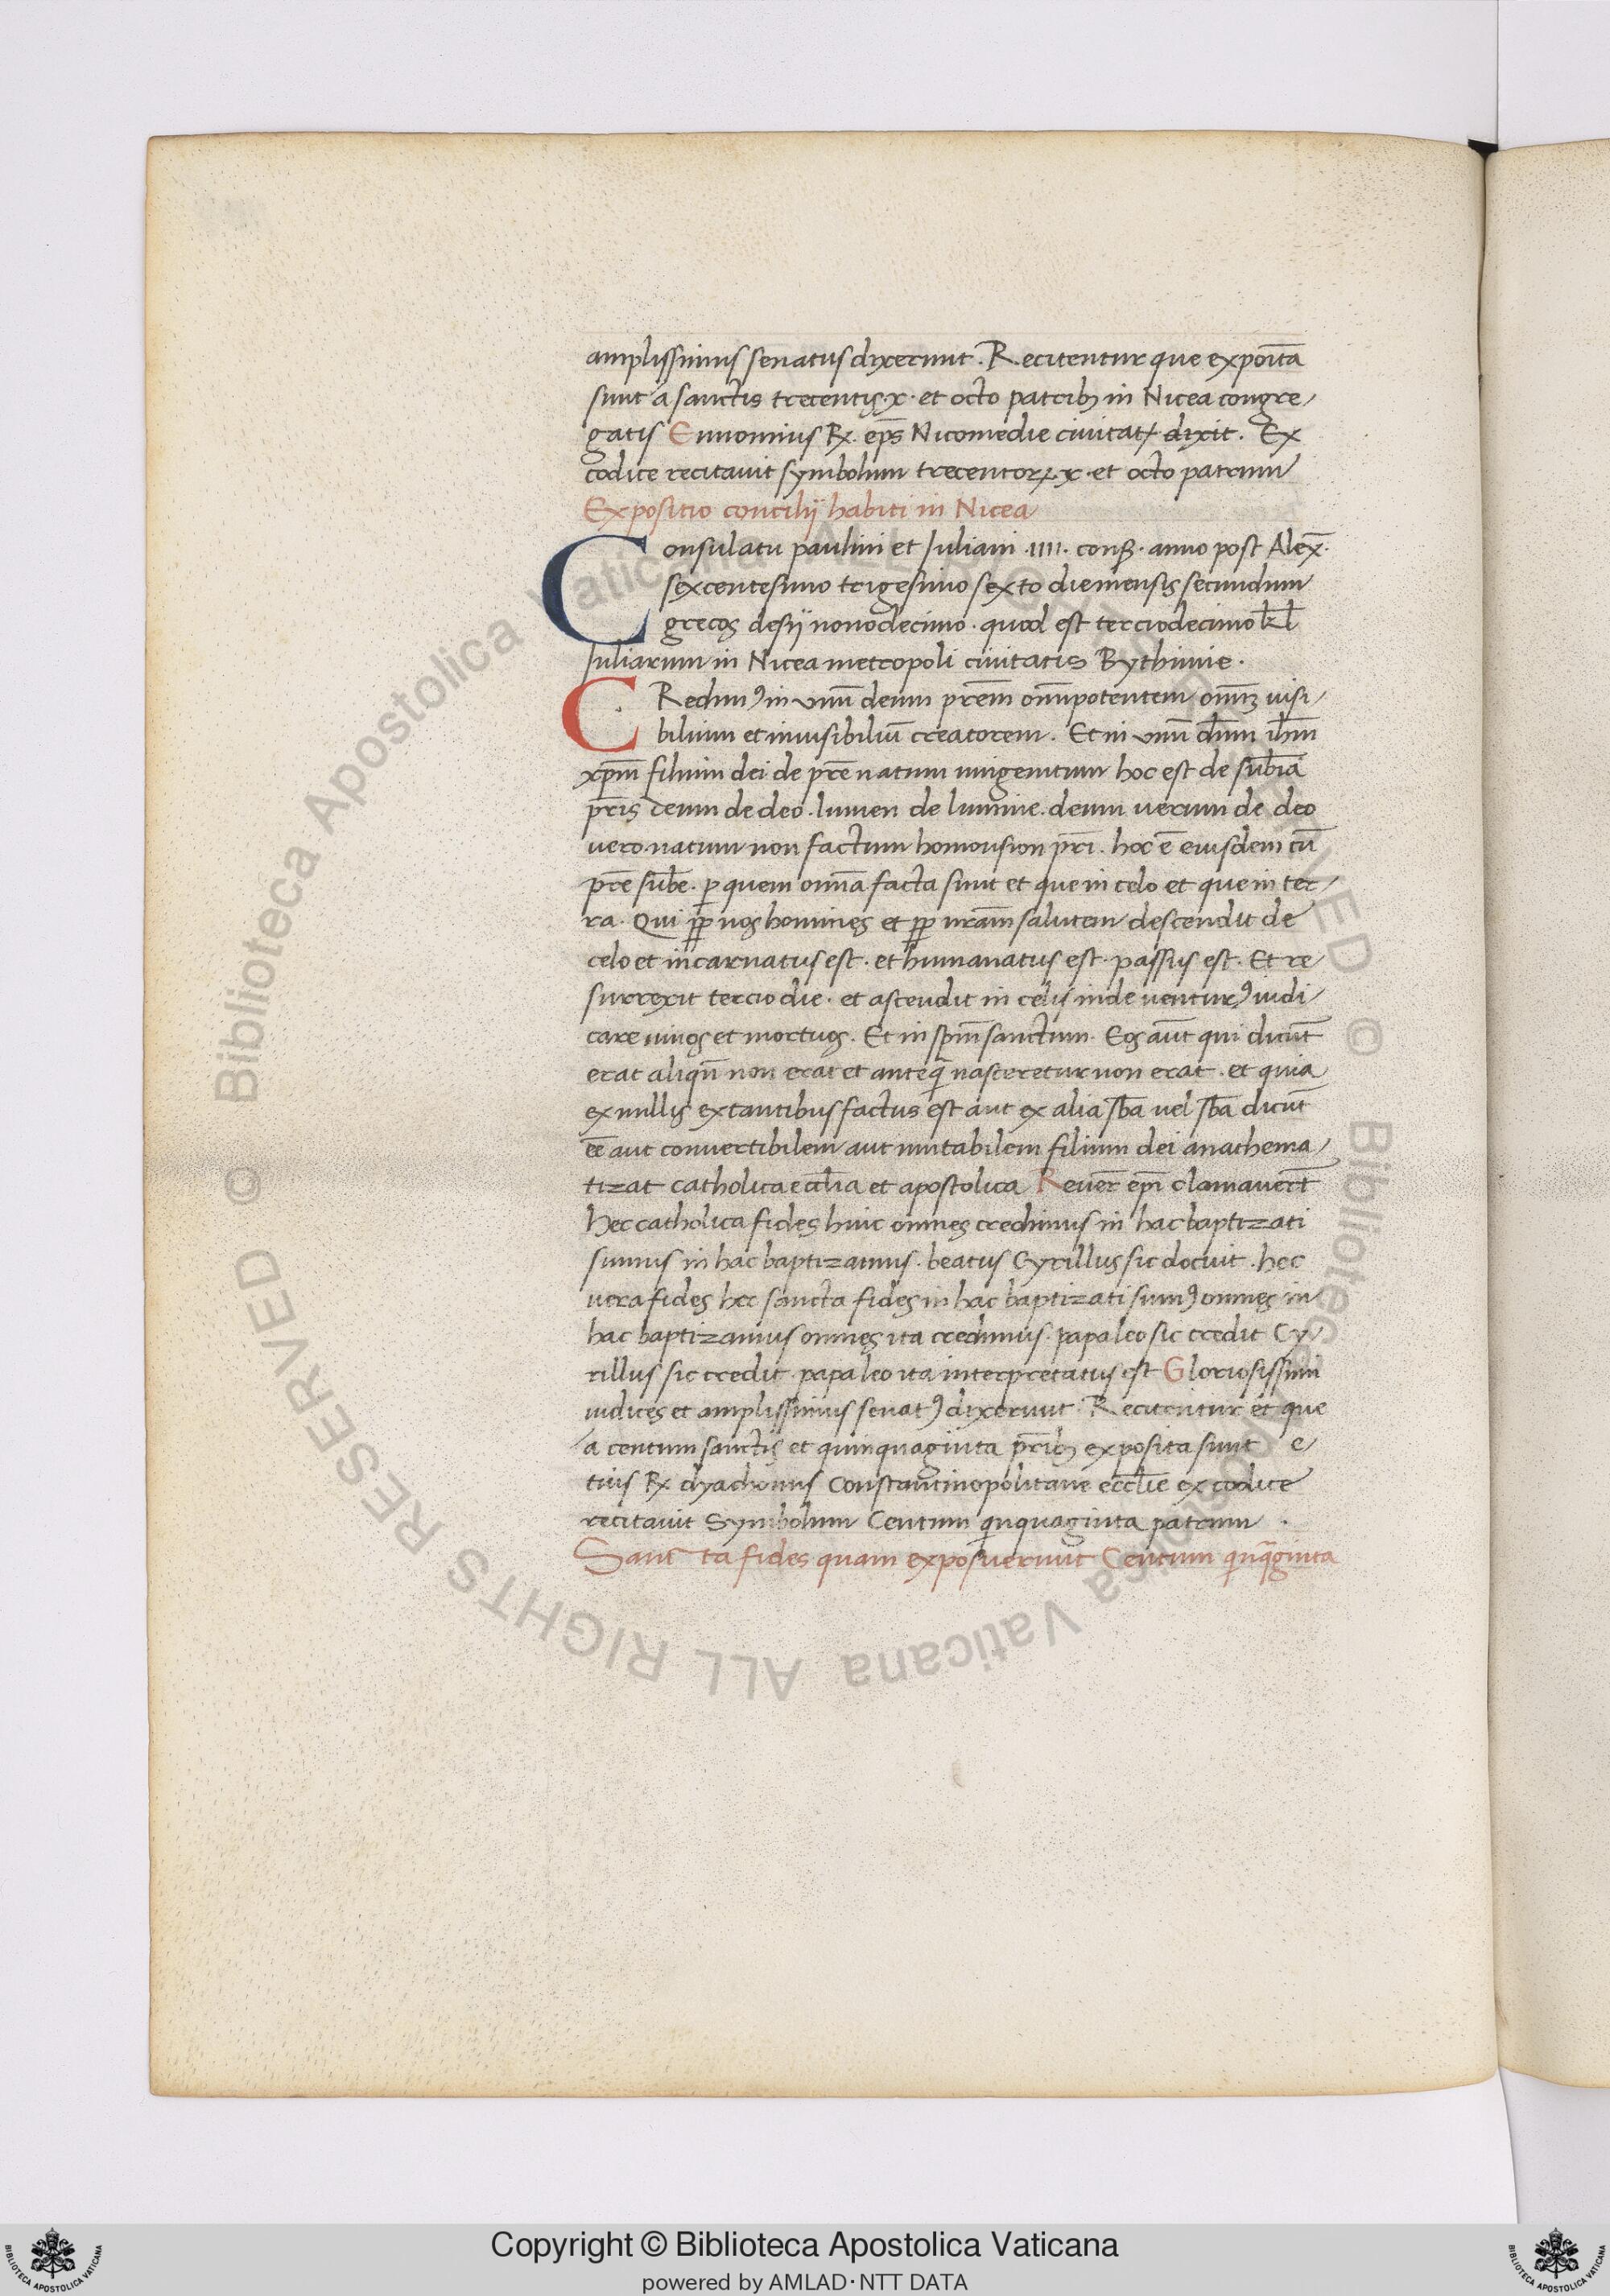 amplissimus senatus dixerunt. Recitentur que expoīta
sunt a sanctis trecentis·x·et octo patribꝫ in Nicea congre/
gatis Eunomius R̶. ep̄s Nicomedie ciuitatꝭ dixit. Ex
codice recitauit symbolum trecentoꝝ·x·et octo patrum
Expositio concilij habiti in Nicea
Consulatu paulini et Juliani ·IIII· conß· anno post Alex̄·
sexcentesimo trigesimo sexto die mensis secundum
grecos desij nonodecimo· quod est terciodecimo kl̄
Juliarum in Nicea metropoli ciuitatis Bythinie·
CRedimꝰ in vnū deum prēm om̄ipotentem om̄iꝫ uisi/
bilium et inuisibiliū creatorem. Et in vnū dn̄m ih̄m
xp̄m filium dei de prē natum unigenitum hoc est de sub̄ia
pr̄is deum de deo. lumen de lumine. deum uerum de deo
uero natum non factum homousion pr̄i. hoc ē eiusdem cū
prē sub̄e. ꝑ quem omīa facta sunt et que in celo et que in ter/
ra. Qui pp̄ nos homines et pp̄ nr̄am salutem descendit de
celo et incarnatus est. et humanatus est. passus est. Et re
surrexit tercio die. et ascendit in celis inde uenturꝰ iudi/
care uiuos et mortuos. Et in sp̄m sanctum. Eos aūt qui dicūt
erat aliqn̄ non erat et anteq̄ nasceretur non erat. et quia
ex nullis extantibus factus est aut ex alia sb̄a uel sb̄a dicūt
eē aut conuertibilem aut mutabilem filium dei anathema/
tizat catholica ecc̄lia et apostolica Reuer̄ ep̄i clamauer̄t
hec catholica fides huic omnes credimus in hac baptizati
sumus in hac baptizamus. beatus Cyrillus sic docuit. hec
uera fides hec sancta fides in hac baptizati sumꝰ omnes in
hac baptizamus omnes ita credimus. papa leo sic credit Cy/
rillus sic credit. papa leo ita interpretatus est Gloriosissimi
iudices et amplissimus senatꝰ dixerunt. Recitentur et que
a centum sanctis et quinquaginta pr̄ibꝫ exposita sunt e/
tius R̶ dyaconus Constantinopolitane eccl̄ie ex codice
recitauit Symbolum Centum qinquaginta patrum ·
Sancta fides quam exposuerunt Centum qinq̄ginta
Copyright © Biblioteca Apostolica Vaticana
powered by AMLAD·NTT DATA